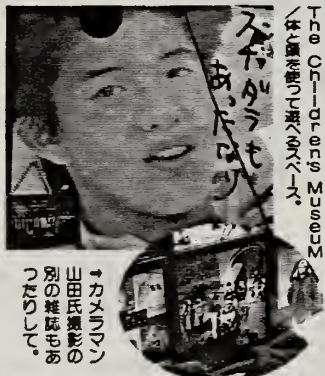 The Children's MuseuM
/体と頭を使って遊べるスペース。
スガダラも
あったり
→カメラマン
山田氏撮影の
別の雑誌もあ
ったりして。